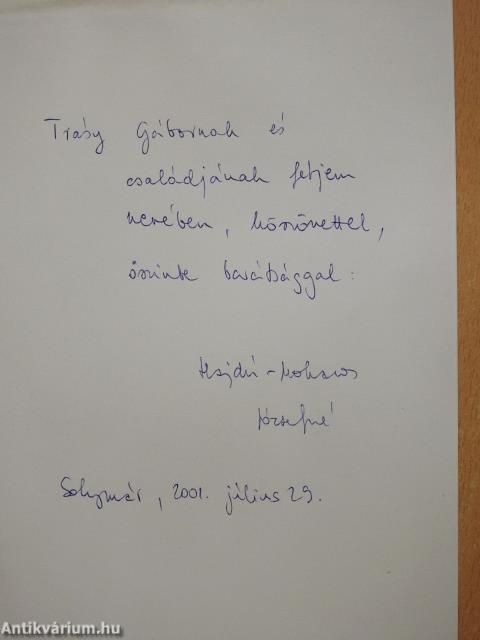 Trásy Gábornak és
családjának férjem
nevében, köszönettel,
őszinte barátsággal:
Hajdú-Moharos
Józsefné
Solymár, 2001. július 29.
Antikvárium.hu